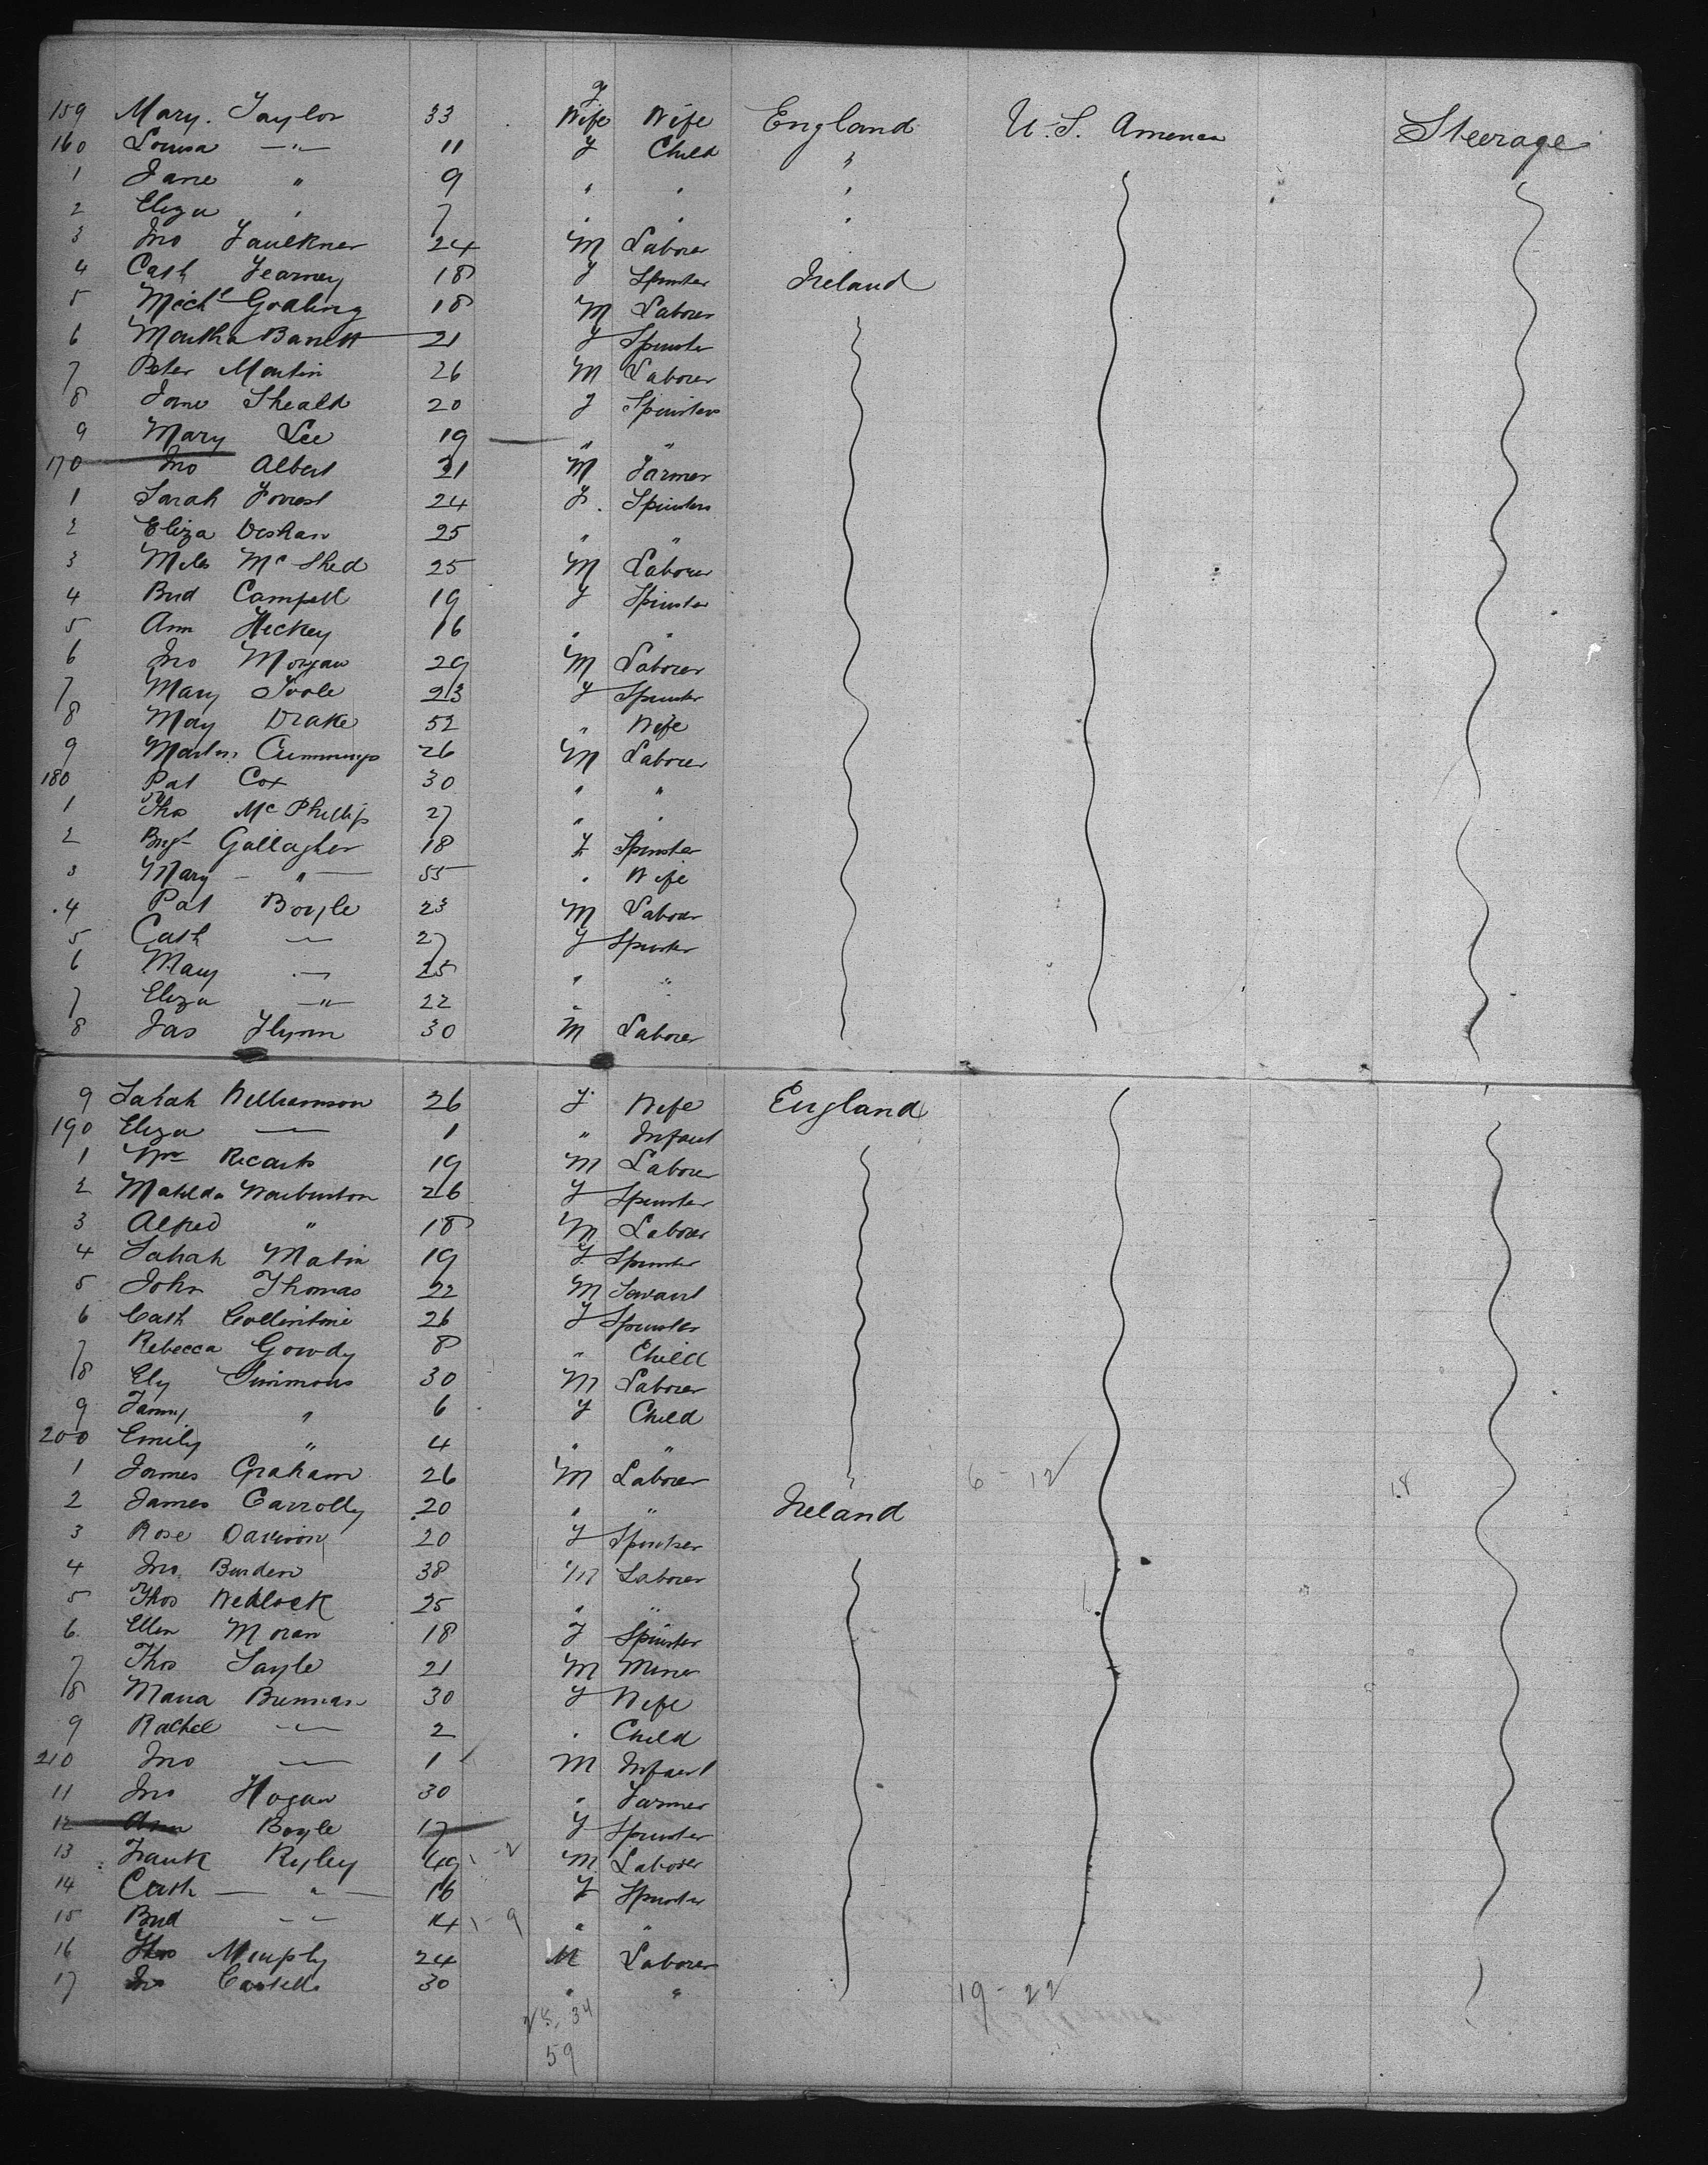 159 Mary. Taylor 33 Wife Wife England U.S. America Steerage
160 Louisa —"— 11 F Child "
1 Jane " 9 " " "
2 Eliza " 7 " " "
3 Jno Faulkner 24 M Laborer
4 Cath Fearney 18 F Spinster Ireland
5 Michl Goaling 18 M Laborer
6 Martha Barrett 21 F Spinster
7 Peter Martin 26 M Laborer
8 Jane Sheald 20 F Spinster
9 Mary Lee 19 " "
170 Jno Albert 21 M Farmer
1 Sarah Forrest 24 F. Spinster
2 Eliza 25 " "
3 Miles McShed 25 M Laborer
4 Brid Campell 19 F Spinster
5 Ann Hickey 16 " "
6 Jno Morgan 29 M Laborer
7 Mary Toole 23 F Spinster
8 May Drake 52 " Wife
9 Martin Cummings 26 M Laborer
180 Pat Cox 30 " "
1 Thos McPhillips 27 " "
2 Brigt Gallagher 18 F Spinster
3 Mary — " — 55 " Wife
4 Pat Boyle 23 M Laborer
5 Cath — 27 F Spinster
6 Mary — 25 " "
7 Eliza —"— 22 "
8 Jas Flynn 30 M Laborer
9 Sahah Williamson 26 F Wife England
190 Eliza — 1 " Infant
1 Wm Ricarts 19 M Laborer
2 Matilda Warburton 26 F Spinster
3 Alfred " 18 M Laborer
4 Sahah Matin 19 F Spinster
5 John Thomas 22 M Servant
6 Cath Collintine 26 F Spinster
7 Rebecca Gowdy 8 " Child
8 Ely Simmons 30 M Laborer
9 Fanny " 6 F Child
200 Emily " 4 " "
1 James Graham 26 M Laborer 6 - 12 18
2 James Carrolly 20 " " Ireland
3 Rose Davison 20 F Spinster
4 Jno. Burden 38 M Laborer
5 Thos Wedlock 25 " "
6 Ellen Moran 18 F Spinster
7 Thos Sayle 21 M Miner
8 Maria Brennan 30 F Wife
9 Rachel — 2 " Child
210 Jno — 1 M Infant
11 Jno Hogan 30 " Farmer
12 Ann Boyle 17 F Spinster
13 Frank Ryley 49 M Laborer
14 Cath — " — 16 F Spinster
15 Brid — 14 1 - 9 " "
16 Thos Murphy 24 M Laborer
17 Jno Castello 30 " "
19 - 22
25 34
59